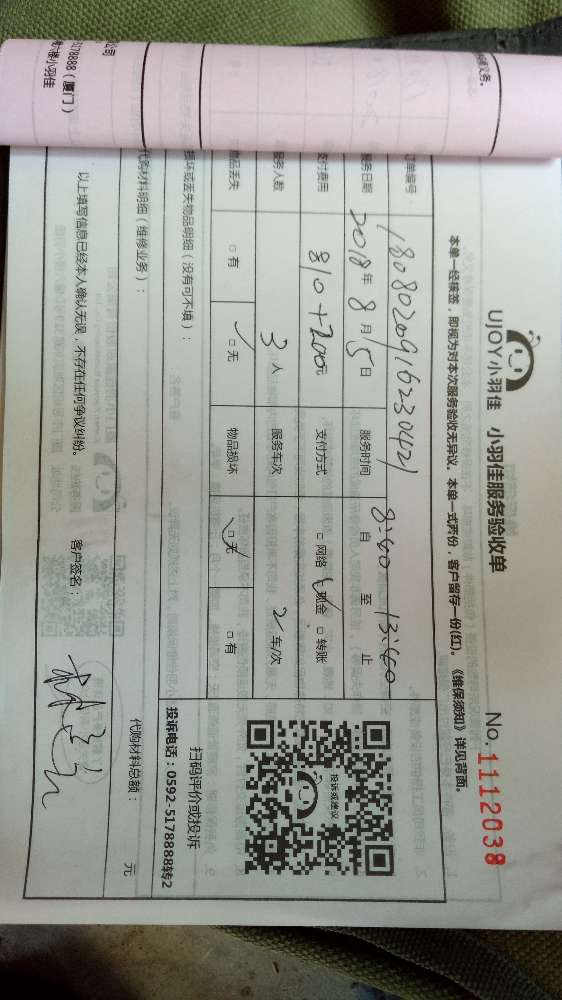 UJOY小羽佳 小羽佳服务验收单
No. 1112038
本单一经核签，即视为对本次服务验收无异议。本单一式两份，客户留存一份(红)。《维保须知》详见背面。
订单编号 服务时间 8:40 自 至 13:40 止
服务日期 2018年8月15日
支付费用 810+200元 支付方式 □ 网络 □ 现金 □ 转账
服务人数 3人 服务车次 2车/次
物品丢失 □ 有 □ 无 物品损坏 □ 无 □ 有
投诉或建议
扫码评价或投诉
投诉电话：0592-5178888转2
损坏或丢失物品明细（没有可不填）：
代购材料明细（维修业务）： 代购材料总额： 元
以上填写信息已经本人确认无误，不存在任何争议纠纷。 客户签名：
5178888（厦门）
小羽佳
公司
义务。